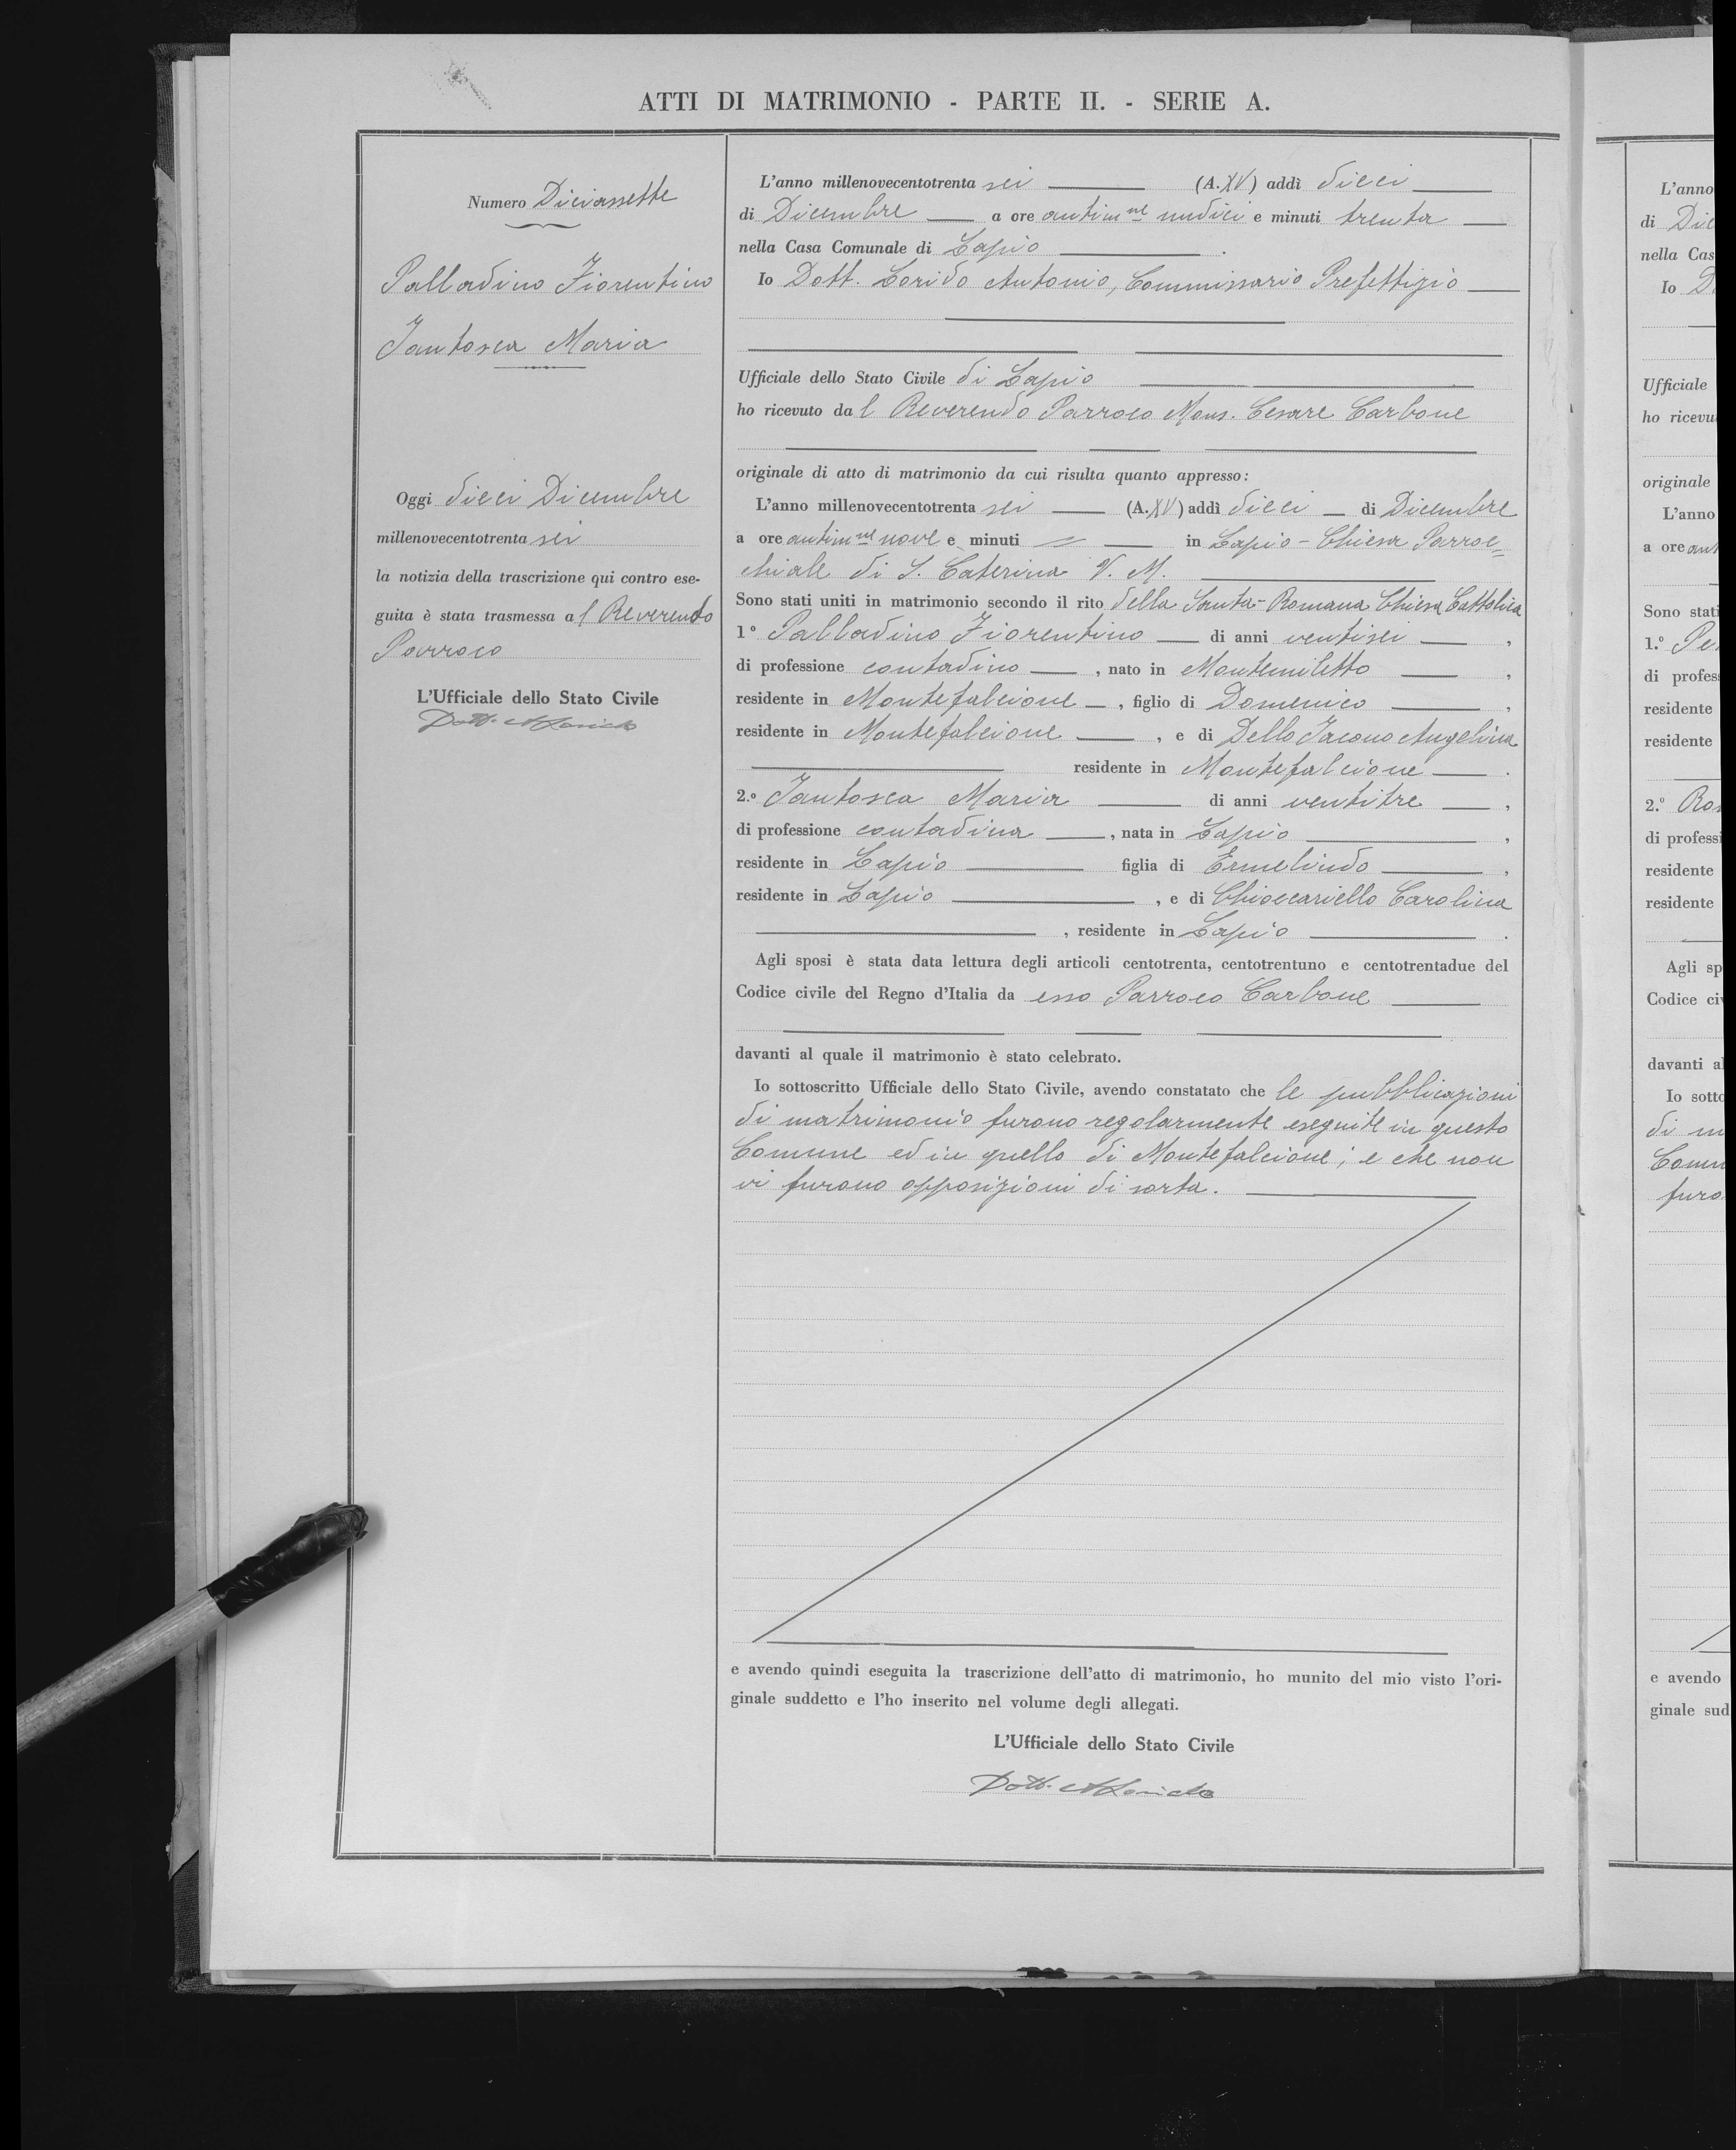 ATTI DI MATRIMONIO - PARTE II. - SERIE A.
Numero Diciassette
Palladino Fiorentino
Iantosca Maria
Oggi dieci Dicembre
millenovecentotrenta sei
la notizia della trascrizione qui contro ese-
guita è stata trasmessa al Reverendo
Parroco
L'Ufficiale dello Stato Civile
Dott. A Lorido
L'anno millenovecentotrenta sei (A. XV) addì dieci
di Dicembre a ore antim.ne undici e minuti trenta
nella Casa Comunale di Lapio
Io Dott. Lorido Antonio, Commissario Prefettizio
Ufficiale dello Stato Civile di Lapio
ho ricevuto dal Reverendo Parroco Mons. Cesare Carbone
originale di atto di matrimonio da cui risulta quanto appresso:
L'anno millenovecentotrenta sei (A. XV) addì dieci di Dicembre
a ore antim.ne nove e minuti = in Lapio - Chiesa Parroc=
chiale di S. Caterina V. M.
Sono stati uniti in matrimonio secondo il rito della Santa-Romana Chiesa Cattolica
1° Palladino Fiorentino di anni ventisei ,
di professione contadino , nato in Montemiletto ,
residente in Montefalcione , figlio di Domenico ,
residente in Montefalcione , e di Dello Iacono Angelina
residente in Montefalcione .
2.° Iantosca Maria di anni ventitre ,
di professione contadina , nata in Lapio ,
residente in Lapio figlia di Ermelindo ,
residente in Lapio , e di Chioccariello Carolina
, residente in Lapio .
Agli sposi è stata data lettura degli articoli centotrenta, centotrentuno e centotrentadue del
Codice civile del Regno d'Italia da esso Parroco Carbone
davanti al quale il matrimonio è stato celebrato.
Io sottoscritto Ufficiale dello Stato Civile, avendo constatato che le pubblicazioni
di matrimonio furono regolarmente eseguite in questo
Comune ed in quello di Montefalcione; e che non
vi furono opposizioni di sorta.
e avendo quindi eseguita la trascrizione dell'atto di matrimonio, ho munito del mio visto l'ori-
ginale suddetto e l'ho inserito nel volume degli allegati.
L'Ufficiale dello Stato Civile
Dott. A Lorido
L'anno
di Dic
nella Cas
Io D
Ufficiale
ho ricevu
originale
L'anno
a ore ant
Sono stati
1.° Pe
di profes
residente
residente
2.° Ro
di professi
residente
residente
Agli sp
Codice civ
davanti al
Io sotto
di m
Comu
furo
e avendo
ginale sud